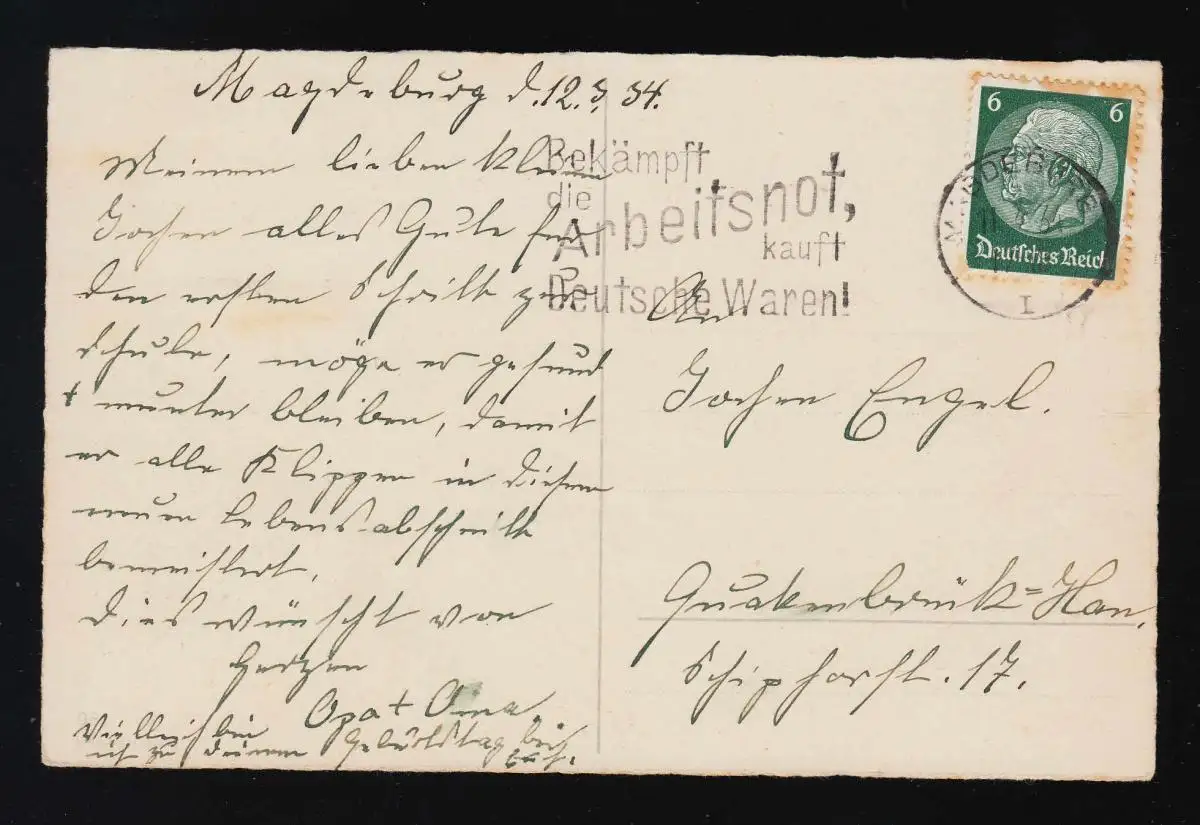 Magdeburg d. 12.3.34.
Meinem lieben kleinen
Jochen alles Gute für
den ersten Schritt zur
Schule, möge er gesund
+ munter bleiben, damit
er alle Klippen in diesem
neuen Lebensabschnitt
bemeistert.
Dies wünscht von
Herzen
Opa + Oma
Vielleicht bin
ich zu deinem Geburtstag bei
Euch.
Bekämpft
die
Arbeitsnot,
kauft
Deutsche Waren!
6 6
Deutsches Reich
MAGDEBURG
I
An
Jochen Engel.
Quakenbrück=Han.
Schiphorst. 17.